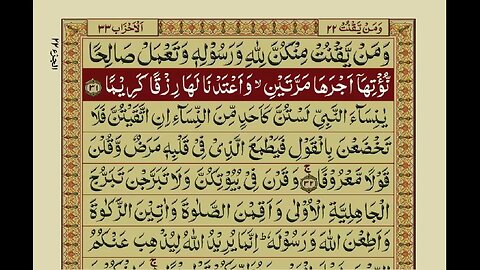 وَمَنْ يَّقْنُتْ ٢٢
اَلْاَحْزَاب ٣٣
وَمَنْ يَّقْنُتْ مِنْكُنَّ لِلّٰهِ وَرَسُوْلِهٖ وَتَعْمَلْ صَالِحًا
نُّؤْتِهَاۤ اَجْرَهَا مَرَّتَيْنِ ۙ وَاَعْتَدْنَا لَهَا رِزْقًا كَرِيْمًا ﴿۳۱﴾
يٰنِسَآءَ النَّبِيِّ لَسْتُنَّ كَاَحَدٍ مِّنَ النِّسَآءِ اِنِ اتَّقَيْتُنَّ فَلَا
تَخْضَعْنَ بِالْقَوْلِ فَيَطْمَعَ الَّذِيْ فِيْ قَلْبِهٖ مَرَضٌ وَّقُلْنَ
قَوْلًا مَّعْرُوْفًا ۚ ﴿۳۲﴾ وَقَرْنَ فِيْ بُيُوْتِكُنَّ وَلَا تَبَرَّجْنَ تَبَرُّجَ
الْجَاهِلِيَّةِ الْاُوْلٰى وَاَقِمْنَ الصَّلٰوةَ وَاٰتِيْنَ الزَّكٰوةَ
وَاَطِعْنَ اللّٰهَ وَرَسُوْلَهٗ ؕ اِنَّمَا يُرِيْدُ اللّٰهُ لِيُذْهِبَ عَنْكُمُ